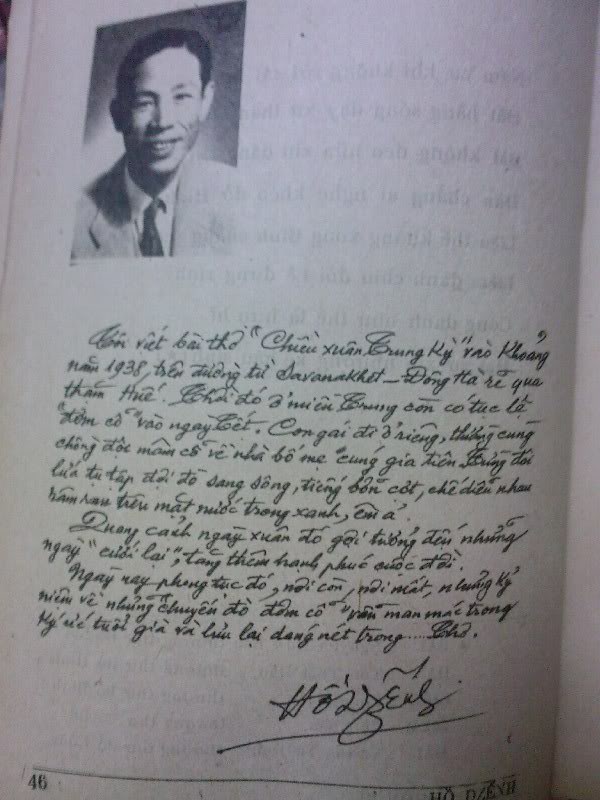 Tôi viết bài thơ "Chiều xuân Trung Kỳ" vào khoảng
năm 1938, trên đường từ Savanakhet – Đông Hà rẽ qua
thăm Huế. Thời đó ở miền Trung còn có tục lệ
"đơm cỗ" vào ngày Tết. Con gái đi ở riêng, thường cùng
chồng đội mâm cỗ về nhà bố mẹ cúng gia tiên. Từng đôi
lứa tụ tập đợi đò sang sông, tiếng bỡn cợt, chế diễu nhau
râm ran trên mặt nước trong xanh, êm ả.
Quang cảnh ngày xuân đó gợi tưởng đến những
ngày "cưới lại", tăng thêm hạnh phúc cuộc đời.
Ngày nay phong tục đó, nơi còn, nơi mất, những kỷ
niệm về những chuyến đò "đơm cỗ" vẫn man mác trong
ký ức tuổi già và lưu lại dáng nét trong..... Thơ.
Hồ Dzếnh
46
HỒ DZẾNH